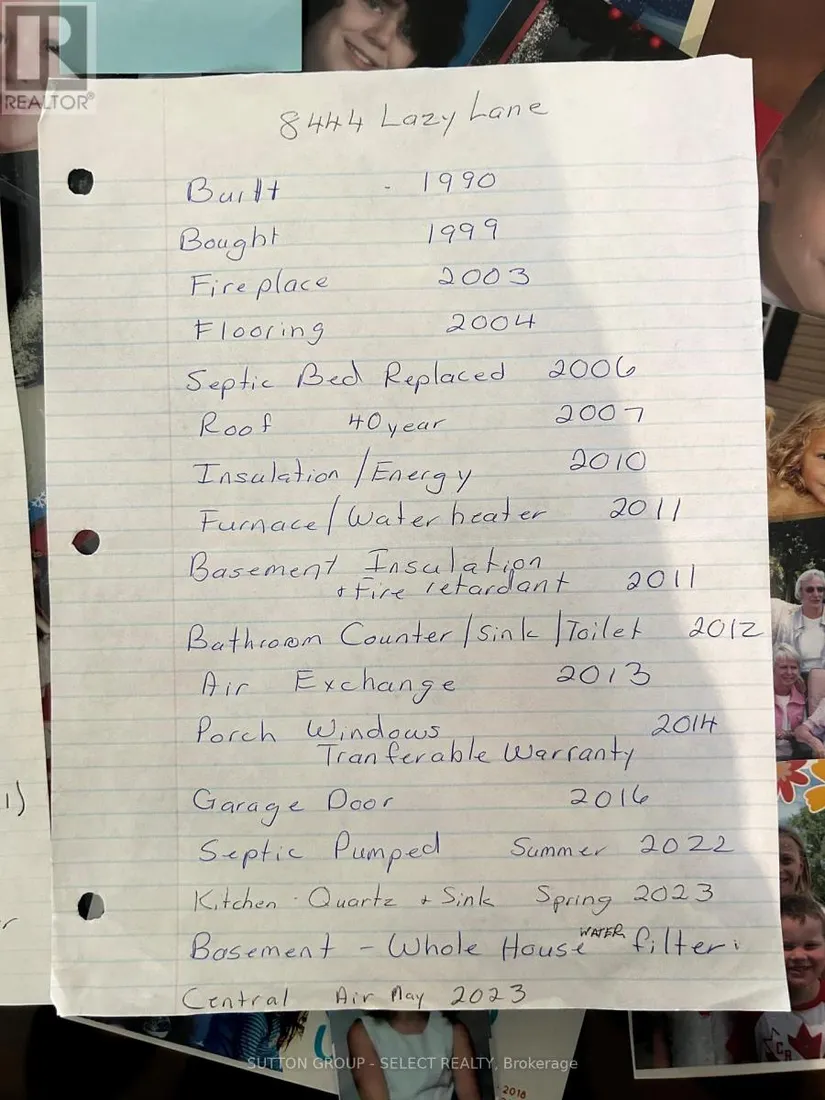 REALTOR®
8444 Lazy Lane
Built - 1990
Bought 1999
Fireplace 2003
Flooring 2004
Septic Bed Replaced 2006
Roof 40 year 2007
Insulation / Energy 2010
Furnace / Water heater 2011
Basement Insulation
+ Fire retardant 2011
Bathroom Counter / Sink / Toilet 2012
Air Exchange 2013
Porch Windows 2014
Tranferable Warranty
1)
Garage Door 2016
Septic Pumped Summer 2022
Kitchen - Quartz + Sink Spring 2023
r
Basement - Whole House WATER filter
Central Air May 2023
SUTTON GROUP - SELECT REALTY, Brokerage
2018